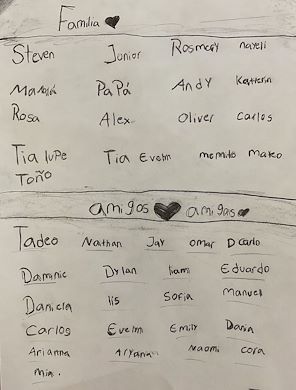 Familia
Steven Junior Rosmery nayeli
Mamá PaPá Andy Katherin
Rosa Alex Oliver Carlos
Tia lupe Tia Evelin memito Mateo
Toño
amigos amigas
Tadeo Nathan Jay omar D carlo
Dominic Dylan liami Eduardo
Daniela lis Sofia Manuel
Carlos Evelin Emily Dania
Arianna Aryana Naomi cora
mia.